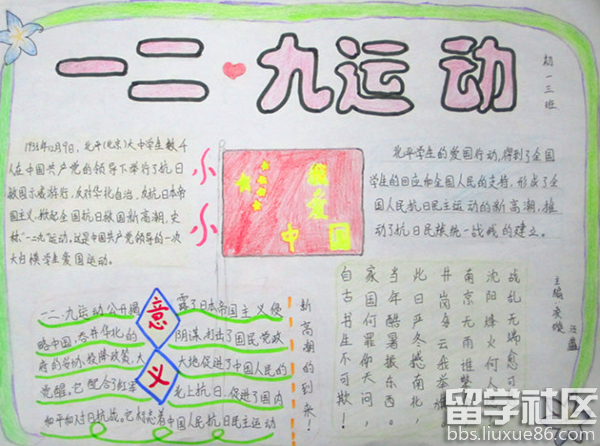 一二·九运动
初一三班
1935年12月9日，北平(北京)大中学生数千
人在中国共产党的领导下举行了抗日
救国示威游行，反对华北自治，反抗日本帝
国主义，掀起全国抗日救国新高潮，史
称“一二·九”运动。这是中国共产党领导的一次
大规模学生爱国运动。
小小
我爱
中国
北平学生的爱国行动，得到了全国
学生的回应和全国人民的支持，形成了全
国人民抗日民主运动的新高潮，推
动了抗日民族统一战线的建立。
意义
一二·九运动公开揭露了日本帝国主义侵
略中国，吞并华北的阴谋，打出了国民党政
府的妥协，投降政策，大大地促进了中国人民的
觉醒。它配合了红军北上抗日，促进了国内
和平和对日抗战。它标志着中国人民抗日民主运动
新高潮的到来！
战乱无端愈可
沈阳烽火何人
南京每云推
井岗南
此日严冬憾南
当年酷暑撼东西，
家国何罪仰天问，
自古书生不可欺！
主编：
留学社区
bbs.liuxue86.com